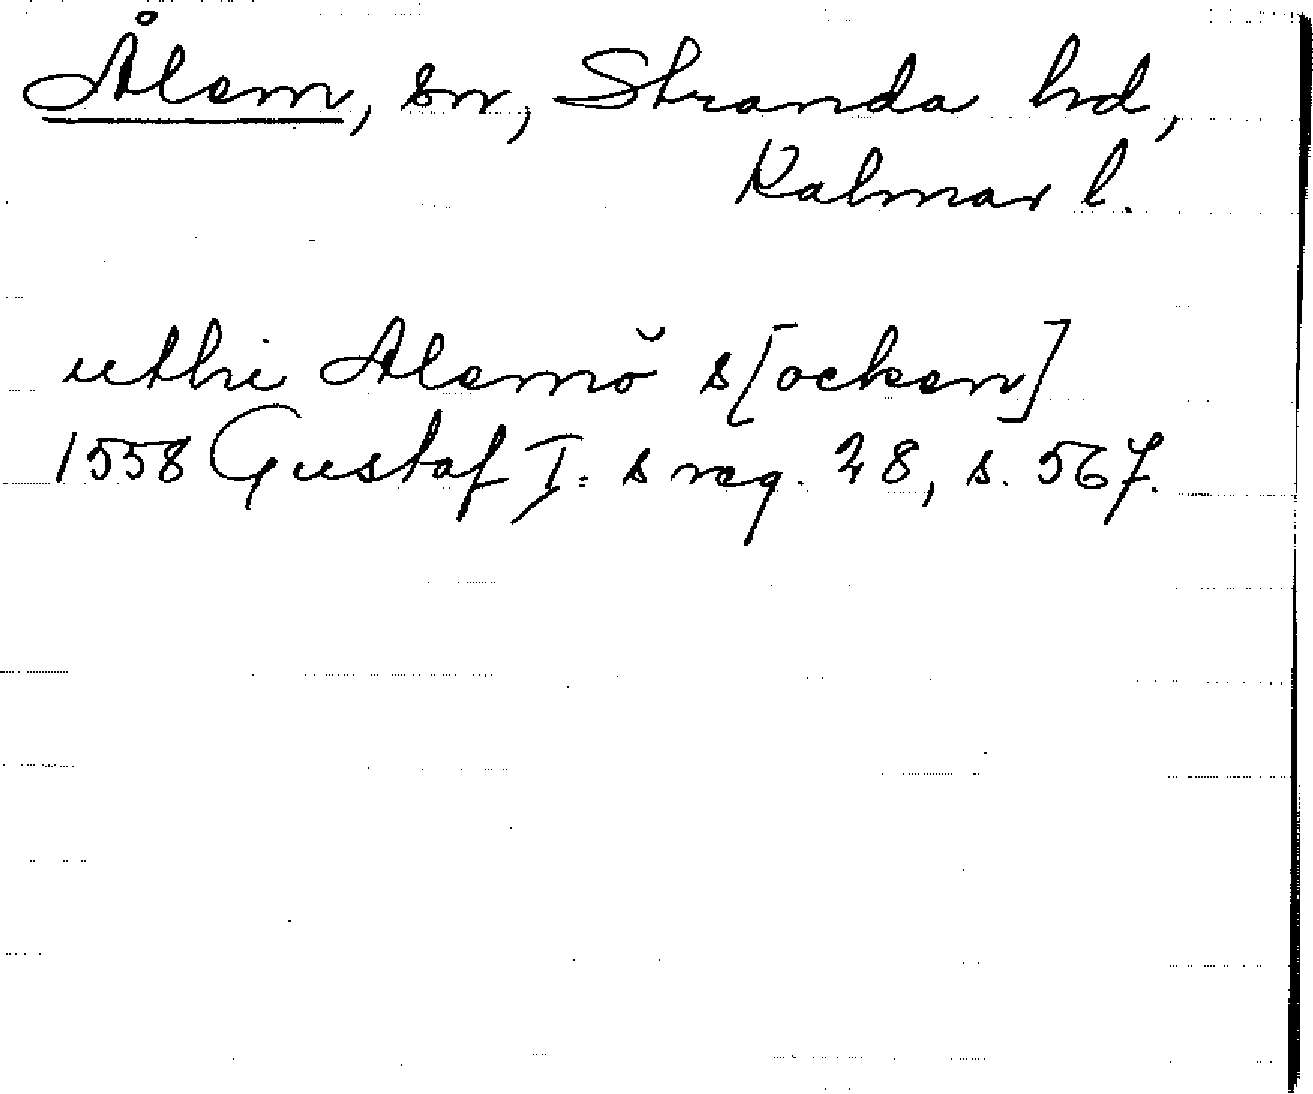 Ålem, sn, Stranda hd,
Kalmar l.
uthi Alemö s[ocken]
1558 Gustaf I:s reg. 28, s. 567.